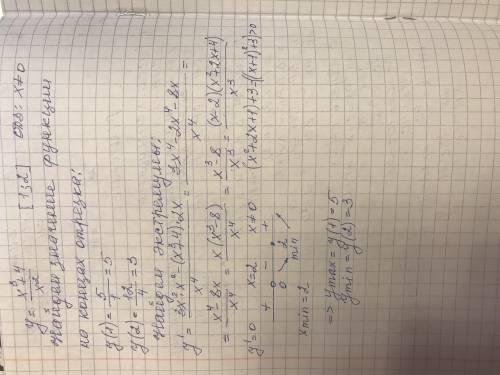 y = x³+4 / x² [1;2] ОДЗ: x≠0
Найдём значение функции
на концах отрезка:
y(1) = 5/1 = 5
y(2) = 12/4 = 3
Найдём экстремумы:
y' = 3x²·x² - (x³+4)·2x / x⁴ = 3x⁴-2x⁴-8x / x⁴ =
= x⁴-8x / x⁴ = x(x³-8) / x⁴ = x³-8 / x³ = (x-2)(x²+2x+4) / x³
y'=0 x=2 x≠0 (x²+2x+1)+3=((x+1)²+3)>0
+ - +
0 2
min
x min = 2
=> y max = y(1) = 5
y min = y(2) = 3